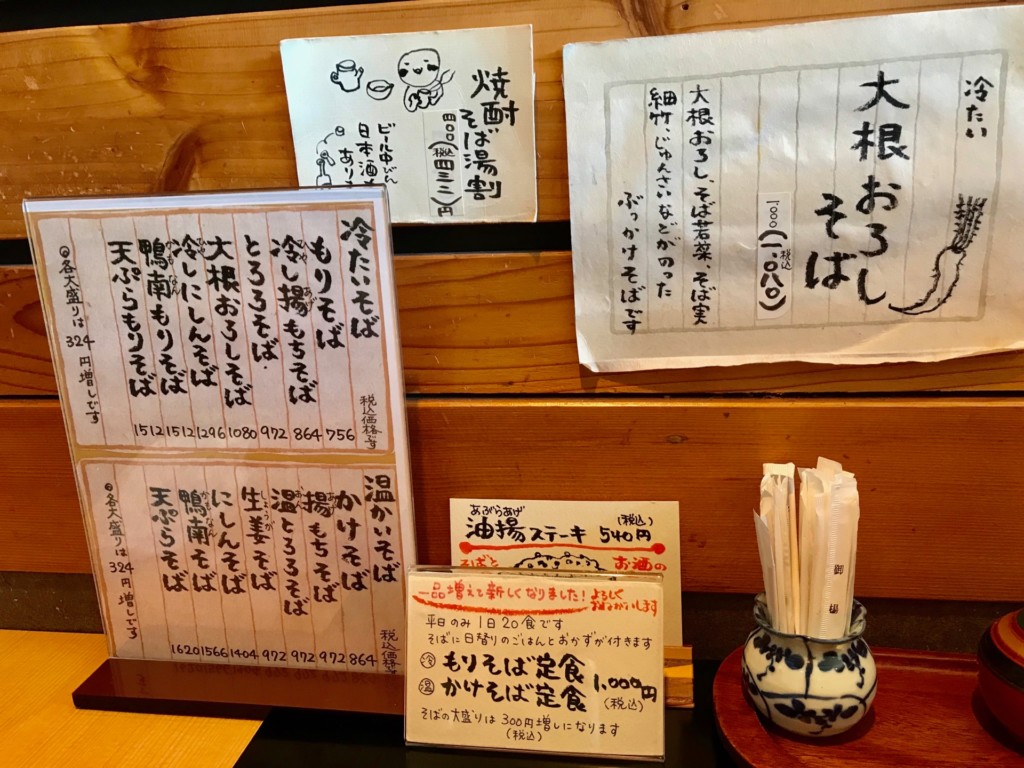 焼酎
そば湯割
四〇〇(税込四三二)円
ビール中びん
日本酒
あり
冷たい
大根おろし
そば
一〇〇〇(税込一、〇八〇)
大根おろし、そば若菜、そば実
細竹、じゅんさいなどがのった
ぶっかけそばです
冷たいそば
税込価格です
もりそば 756
冷し揚もちそば 864
とろろそば 972
大根おろしそば 1080
冷しにしんそば 1296
鴨南もりそば 1512
天ぷらもりそば 1512
各大盛りは324円増しです
温かいそば
税込価格
かけそば 864
揚もちそば 972
温とろろそば 972
生姜そば 972
にしんそば 1404
鴨南そば 1566
天ぷらそば 1620
各大盛りは324円増しです
あぶらあげ
油揚ステーキ 540円(税込)
そばと
お酒の
一品増えて新しくなりました!よろしくおねがいします
平日のみ1日20食です
そばに日替りのごはんとおかずが付きます
冷 もりそば定食
温 かけそば定食
1,000円
(税込)
そばの大盛りは300円増しになります
(税込)
御